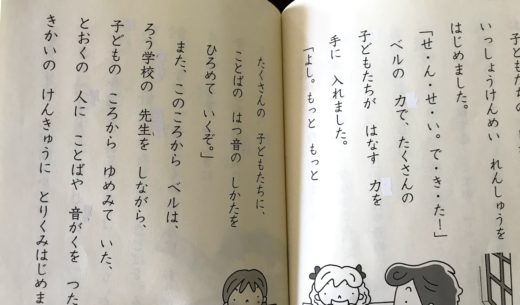 いっしょうけんめい れんしゅうを
はじめました。
「せ・ん・せ・い。で・き・た！」
ベルの 力で、たくさんの
子どもたちが はなす 力を
手に 入れました。
「よし。もっと もっと
たくさんの 子どもたちに、
ことばの はつ音の しかたを
ひろめて いくぞ。」
また、このころから ベルは、
ろう学校の 先生を しながら、
子どもの ころから ゆめみて いた、
とおくの 人に ことばや 音がくを つた
きかいの けんきゅうに とりくみはじめま